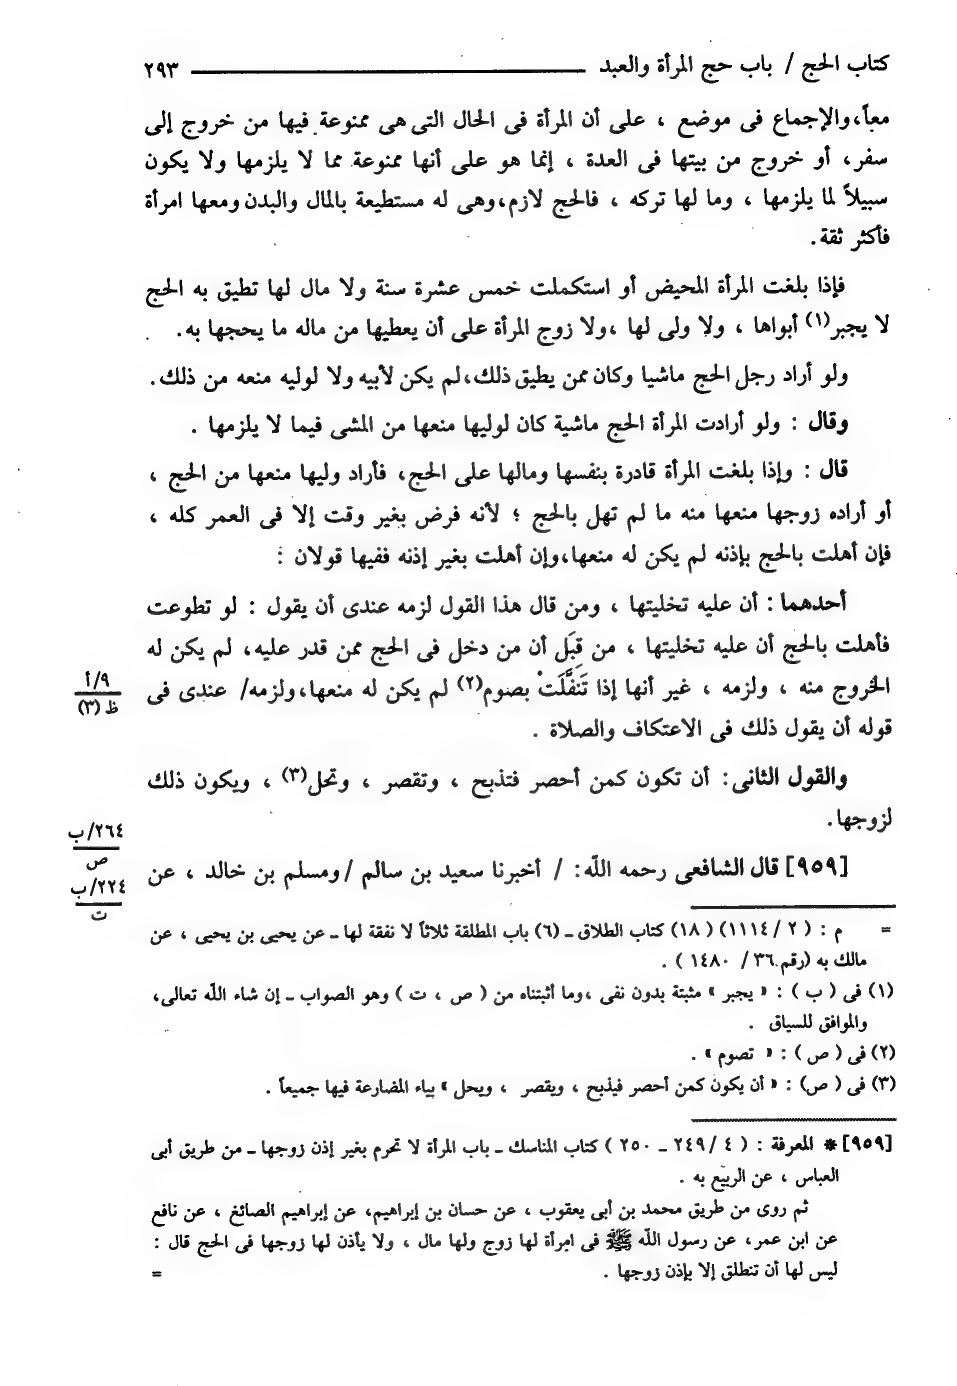 كتاب الحج / باب حج المرأة والعبد ٢٩٣
معاً،والإجماع فى موضع ، على أن المرأة فى الحال التى هى ممنوعة فيها من خروج إلى
سفر، أو خروج من بيتها فى العدة ، إنما هو على أنها ممنوعة مما لا يلزمها ولا يكون
سبيلاً لما يلزمها ، وما لها تركه ، فالحج لازم،وهى له مستطيعة بالمال والبدن ومعها امرأة
فأكثر ثقة.
فإذا بلغت المرأة المحيض أو استكملت خمس عشرة سنة ولا مال لها تطيق به الحج
لا يجبر(١) أبواها ، ولا ولى لها ،ولا زوج المرأة على أن يعطيها من ماله ما يحجها به.
ولو أراد رجل الحج ماشيا وكان ممن يطيق ذلك،لم يكن لأبيه ولا لوليه منعه من ذلك.
وقال : ولو أرادت المرأة الحج ماشية كان لوليها منعها من المشى فيما لا يلزمها .
قال : وإذا بلغت المرأة قادرة بنفسها ومالها على الحج، فأراد وليها منعها من الحج ،
أو أراده زوجها منعها منه ما لم تهل بالحج ؛ لأنه فرض بغير وقت إلا فى العمر كله ،
فإن أهلت بالحج بإذنه لم يكن له منعها،وإن أهلت بغير إذنه ففيها قولان :
أحدهما : أن عليه تخليتها ، ومن قال هذا القول لزمه عندى أن يقول : لو تطوعت
فأهلت بالحج أن عليه تخليتها ، من قِبَلِ أن من دخل فى الحج ممن قدر عليه، لم يكن له
الخروج منه ، ولزمه ، غير أنها إذا تَنَفَّلَتْ بصوم(٢) لم يكن له منعها،ولزمه/ عندى فى
٩/أ
ظ (٣)
قوله أن يقول ذلك فى الاعتكاف والصلاة .
والقول الثانى: أن تكون كمن أحصر فتذبح ، وتقصر ، وتحل(٣) ، ويكون ذلك
لزوجها.
٢٦٤/ب
ص
[٩٥٩] قال الشافعى رحمه اللّه: / أخبرنا سعيد بن سالم /ومسلم بن خالد ، عن
٢٢٤/ب
ت
= م : ( ٢ / ١١١٤) (١٨) كتاب الطلاق ـ (٦) باب المطلقة ثلاثاً لا نفقة لها ـ عن يحيى بن يحيى ، عن
مالك به (رقم ٣٦ / ١٤٨٠ ) .
(١) فى ( ب ) : « يجبر » مثبتة بدون نفى ،وما أثبتناه من ( ص ، ت ) وهو الصواب ـ إن شاء اللّه تعالى،
والموافق للسياق .
(٢) فى ( ص ) : « تصوم » .
(٣) فى ( ص) : « أن يكون كمن أحصر فيذبح ، ويقصر ، ويحل » بياء المضارعة فيها جميعاً .
[٩٥٩] * المعرفة : ( ٤ /٢٤٩ ـ ٢٥٠ ) كتاب المناسك ـ باب المرأة لا تحرم بغير إذن زوجها ـ من طريق أبى
العباس ، عن الربيع به .
ثم روى من طريق محمد بن أبى يعقوب ، عن حسان بن إبراهيم، عن إبراهيم الصائغ ، عن نافع
عن ابن عمر، عن رسول اللّه ﷺ فى امرأة لها زوج ولها مال ، ولا يأذن لها زوجها فى الحج قال :
ليس لها أن تنطلق إلا بإذن زوجها . =